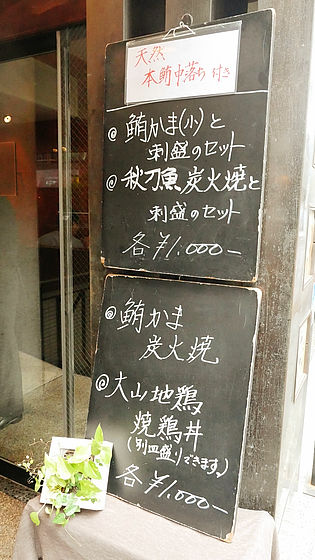 天然
本鮪中落ち付き
◎鮪かま(小)と
刺盛のセット
◎秋刀魚炭火焼と
刺盛のセット
各¥1.000-
◎鮪かま
炭火焼
◎大山地鶏
焼鶏丼
(別皿盛りできます)
各¥1.000-